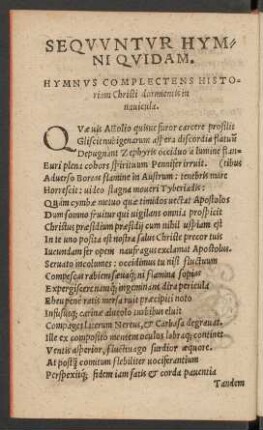 SEQVVNTVR HYM-
NI QVIDAM.
HYMNVS COMPLECTENS HISTO-
riam Christi dormientis in
nauicula.
QVæ uis Aeolio quisue furor carcere prosilit
Gliscit nubigenarum aspera discordia flatuũ
Depugnant Zephyris occiduo à lumine stan-
Euri plena cohors spirituum Pennifer irruit. (tibus
Aduerso Boreas flamine in Austrum: tenebris mare
Horrescit: uideo stagna moueri Tyberiadis:
Quàm cymbæ metuo quæ timidos uectat Apostolos
Dum somno fruitur qui uigilans omnia prospicit
Christus præsidium præsidij cum nihil uspiam est
In te uno posita est nostra salus Christe precor tuis
Iucundam fer opem naufragus exclamat Apostolus.
Seruato incolumes: occidimus tu nisi fluctuum
Compescas rabiem sæuaq; ni flamina sopias
Expergiscere nauiq; ingeminant dira pericula
Rheu penè ratis mersa ruit præcipiti noto
Infususq; carinæ aluo turbibus eluit
Compages laterum Nereus, & Carbasa degrauat.
Ille ex composito mentem oculos labraq; continet
Ventis asperior, fluctiuago surdior æquore.
At postq̃ comitum flebiliter uociferantium
Perspexitq; fidem iam satis & corda pauentia
Tandem